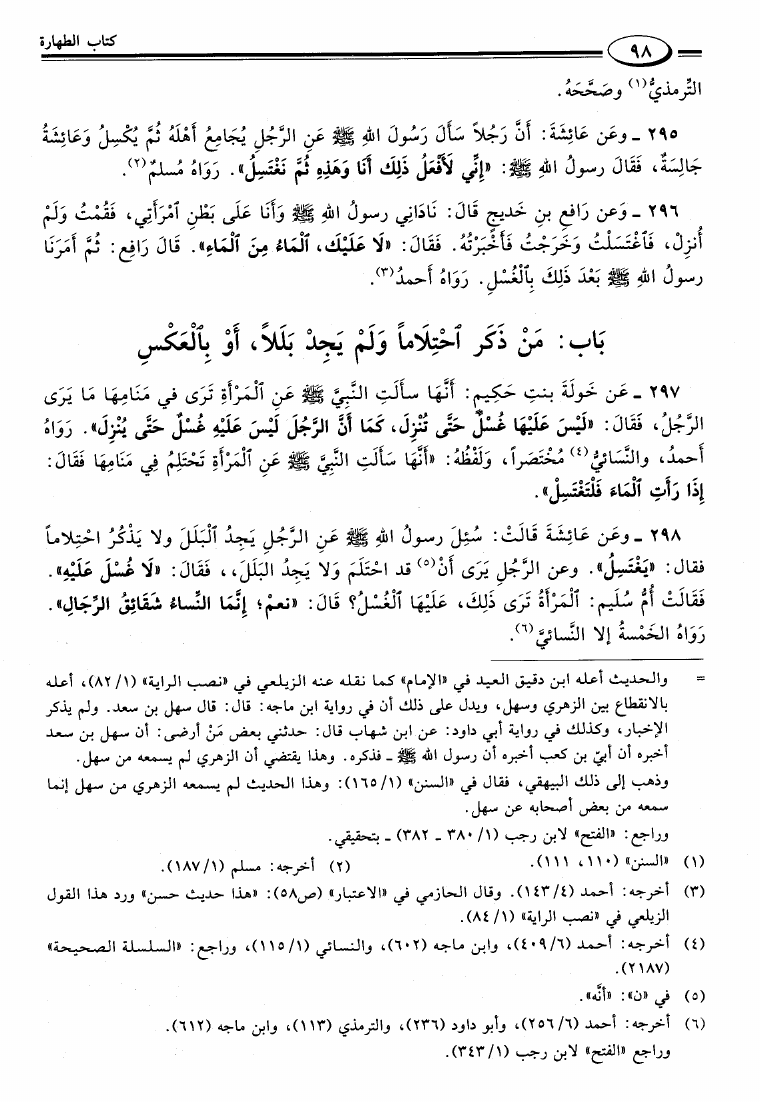 كتاب الطهارة
٩٨
التِّرمذيُّ(١) وصَحَّحَهُ.
٢٩٥ ـ وعَن عَائِشَةَ: أَنَّ رَجُلاً سَأَلَ رَسُولَ اللهِ ﷺ عَنِ الرَّجُلِ يُجَامِعُ أَهْلَهُ ثُمَّ يُكْسِلُ وَعَائِشَةُ
جَالِسَةٌ، فَقَالَ رسولُ اللهِ ﷺ: «إِنِّي لَأَفْعَلُ ذَلِكَ أَنَا وَهَذِهِ ثُمَّ نَغْتَسِلُ». رَوَاهُ مُسلمٌ(٢).
٢٩٦ ـ وَعَن رَافِعِ بنِ خَديجٍ قَالَ: نَادَانِي رسولُ اللهِ ﷺ وَأَنَا عَلَى بَطْنِ ٱمْرَأَتِي، فَقُمْتُ وَلَمْ
أُنزِلْ، فَٱغْتَسَلْتُ وَخَرَجْتُ فَأَخْبَرْتُهُ. فَقَالَ: «لَا عَلَيْكَ، ٱلْمَاءُ مِنَ ٱلْمَاءِ». قَالَ رَافِع: ثُمَّ أَمَرَنَا
رسولُ اللهِ ﷺ بَعْدَ ذَلِكَ بِٱلْغُسْلِ. رَوَاهُ أَحمدُ(٣).
بَاب: مَنْ ذَكَر ٱحْتِلَاماً وَلَمْ يَجِدْ بَلَلاً، أَوْ بِٱلْعَكْسِ
٢٩٧ ـ عَن خَولَةَ بنتِ حَكِيمٍ: أَنَّهَا سأَلَتِ النَّبِيَّ ﷺ عَنِ ٱلْمَرْأَةِ تَرَى في مَنَامِهَا مَا يَرَى
الرَّجُلُ، فَقَالَ: «لَيْسَ عَلَيْهَا غُسْلٌ حَتَّى تُنْزِلَ، كَمَا أَنَّ الرَّجُلَ لَيْسَ عَلَيْهِ غُسْلٌ حَتَّى يُنْزِلَ». رَوَاهُ
أَحمدُ، والنَّسَائيُّ(٤) مُخْتَصَراً، وَلَفْظُهُ: «أَنَّهَا سَأَلَتِ النَّبِيَّ ﷺ عَنِ المَرْأَةِ تَحْتَلِمُ فِي مَنَامِهَا فَقَالَ:
إِذَا رَأَتِ ٱلْمَاءَ فَلْتَغْتَسِلْ».
٢٩٨ ـ وعَن عَائِشَةَ قَالَتْ: سُئِلَ رسولُ اللهِ ﷺ عَنِ الرَّجُلِ يَجِدُ ٱلْبَلَلَ ولا يَذْكُرُ احْتِلاماً
فقال: «يَغْتَسِلُ». وعنِ الرَّجُلِ يَرَى أَنْ(٥) قد احْتَلَمَ وَلا يَجِدُ البَلَلَ،، فَقَالَ: «لَا غُسْلَ عَلَيْهِ».
فَقَالَتْ أُمُّ سُلَيم: ٱلْمَرْأَةُ تَرَى ذَلِكَ، عَلَيْهَا ٱلْغُسْلُ؟ قَالَ: «نعمْ؛ إِنَّمَا النِّساءُ شَقَائِقُ الرِّجَالِ».
رَوَاهُ الخَمْسةُ إلا النَّسائيَّ(٦).
= والحديث أعله ابن دقيق العيد في «الإمام» كما نقله عنه الزيلعي في «نصب الراية» (١/ ٨٢)، أعله
بالانقطاع بين الزهري وسهل، ويدل على ذلك أن في رواية ابن ماجه: قال: قال سهل بن سعد. ولم يذكر
الإخبار، وكذلك في رواية أبي داود: عن ابن شهاب قال: حدثني بعض مَنْ أرضى: أن سهل بن سعد
أخبره أن أبيّ بن كعب أخبره أن رسول الله ﷺ ـ فذكره. وهذا يقتضي أن الزهري لم يسمعه من سهل.
وذهب إلى ذلك البيهقي، فقال في «السنن» (١/ ١٦٥): وهذا الحديث لم يسمعه الزهري من سهل إنما
سمعه من بعض أصحابه عن سهل.
وراجع: «الفتح» لابن رجب (١/ ٣٨٠ ـ ٣٨٢) ـ بتحقيقي.
(١) «السنن» (١١٠، ١١١). (٢) أخرجه: مسلم (١/ ١٨٧).
(٣) أخرجه: أحمد (٤/ ١٤٣). وقال الحازمي في «الاعتبار» (ص٥٨): «هذا حديث حسن» ورد هذا القول
الزيلعي في «نصب الراية» (١/ ٨٤).
(٤) أخرجه: أحمد (٦/ ٤٠٩)، وابن ماجه (٦٠٢)، والنسائي (١/ ١١٥)، وراجع: «السلسلة الصحيحة»
(٢١٨٧).
(٥) في «ن»: «أنَّه».
(٦) أخرجه: أحمد (٦/ ٢٥٦)، وأبو داود (٢٣٦)، والترمذي (١١٣)، وابن ماجه (٦١٢).
وراجع «الفتح» لابن رجب (١/ ٣٤٣).